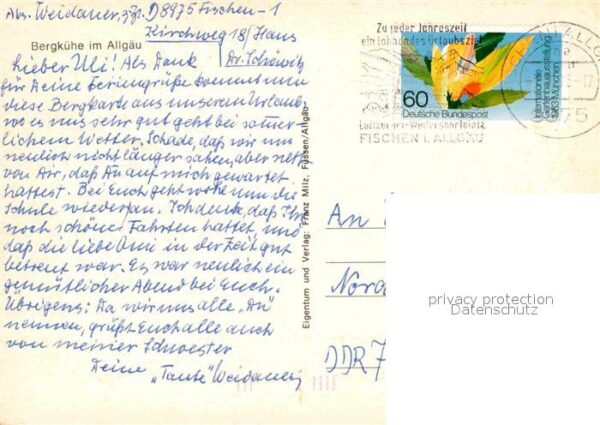 Abs. Weidauer, zzt. D8975 Fischen-1
Kirchweg 18/Haus
Dr. Schöwitz
Bergkühe im Allgäu
Lieber Uli! Als Dank
für Deine Feriengrüße kommt nun
diese Bergkarte aus unserem Urlaub,
wo es uns sehr gut geht bei sommer-
lichem Wetter. Schade, daß wir uns
neulich nicht länger sahen, aber nett
von Dir, daß Du auf mich gewartet
hattest. Bei Euch geht wohl nun die
Schule wieder an. Ich denke, daß Ihr
noch schöne Fahrten hattet, und
daß die liebe Omi in der Zeit gut
betreut war. Es war neulich ein
gemütlicher Abend bei Euch.
Übrigens: Da wir uns alle "Du"
nennen, grüßt Euch alle auch
von meiner Schwester
Deine
"Tante" Weidauer
Eigentum und Verlag: Franz Milz, Füssen/Allgäu
Zu jeder Jahreszeit
ein lohnendes Urlaubsziel
Luftkur- und Wintersportplatz
FISCHEN I. ALLGÄU
60
Deutsche Bundespost
Internationale
Gartenbauausstellung
1983 München
An
Nord
DDR 7
privacy protection
Datenschutz